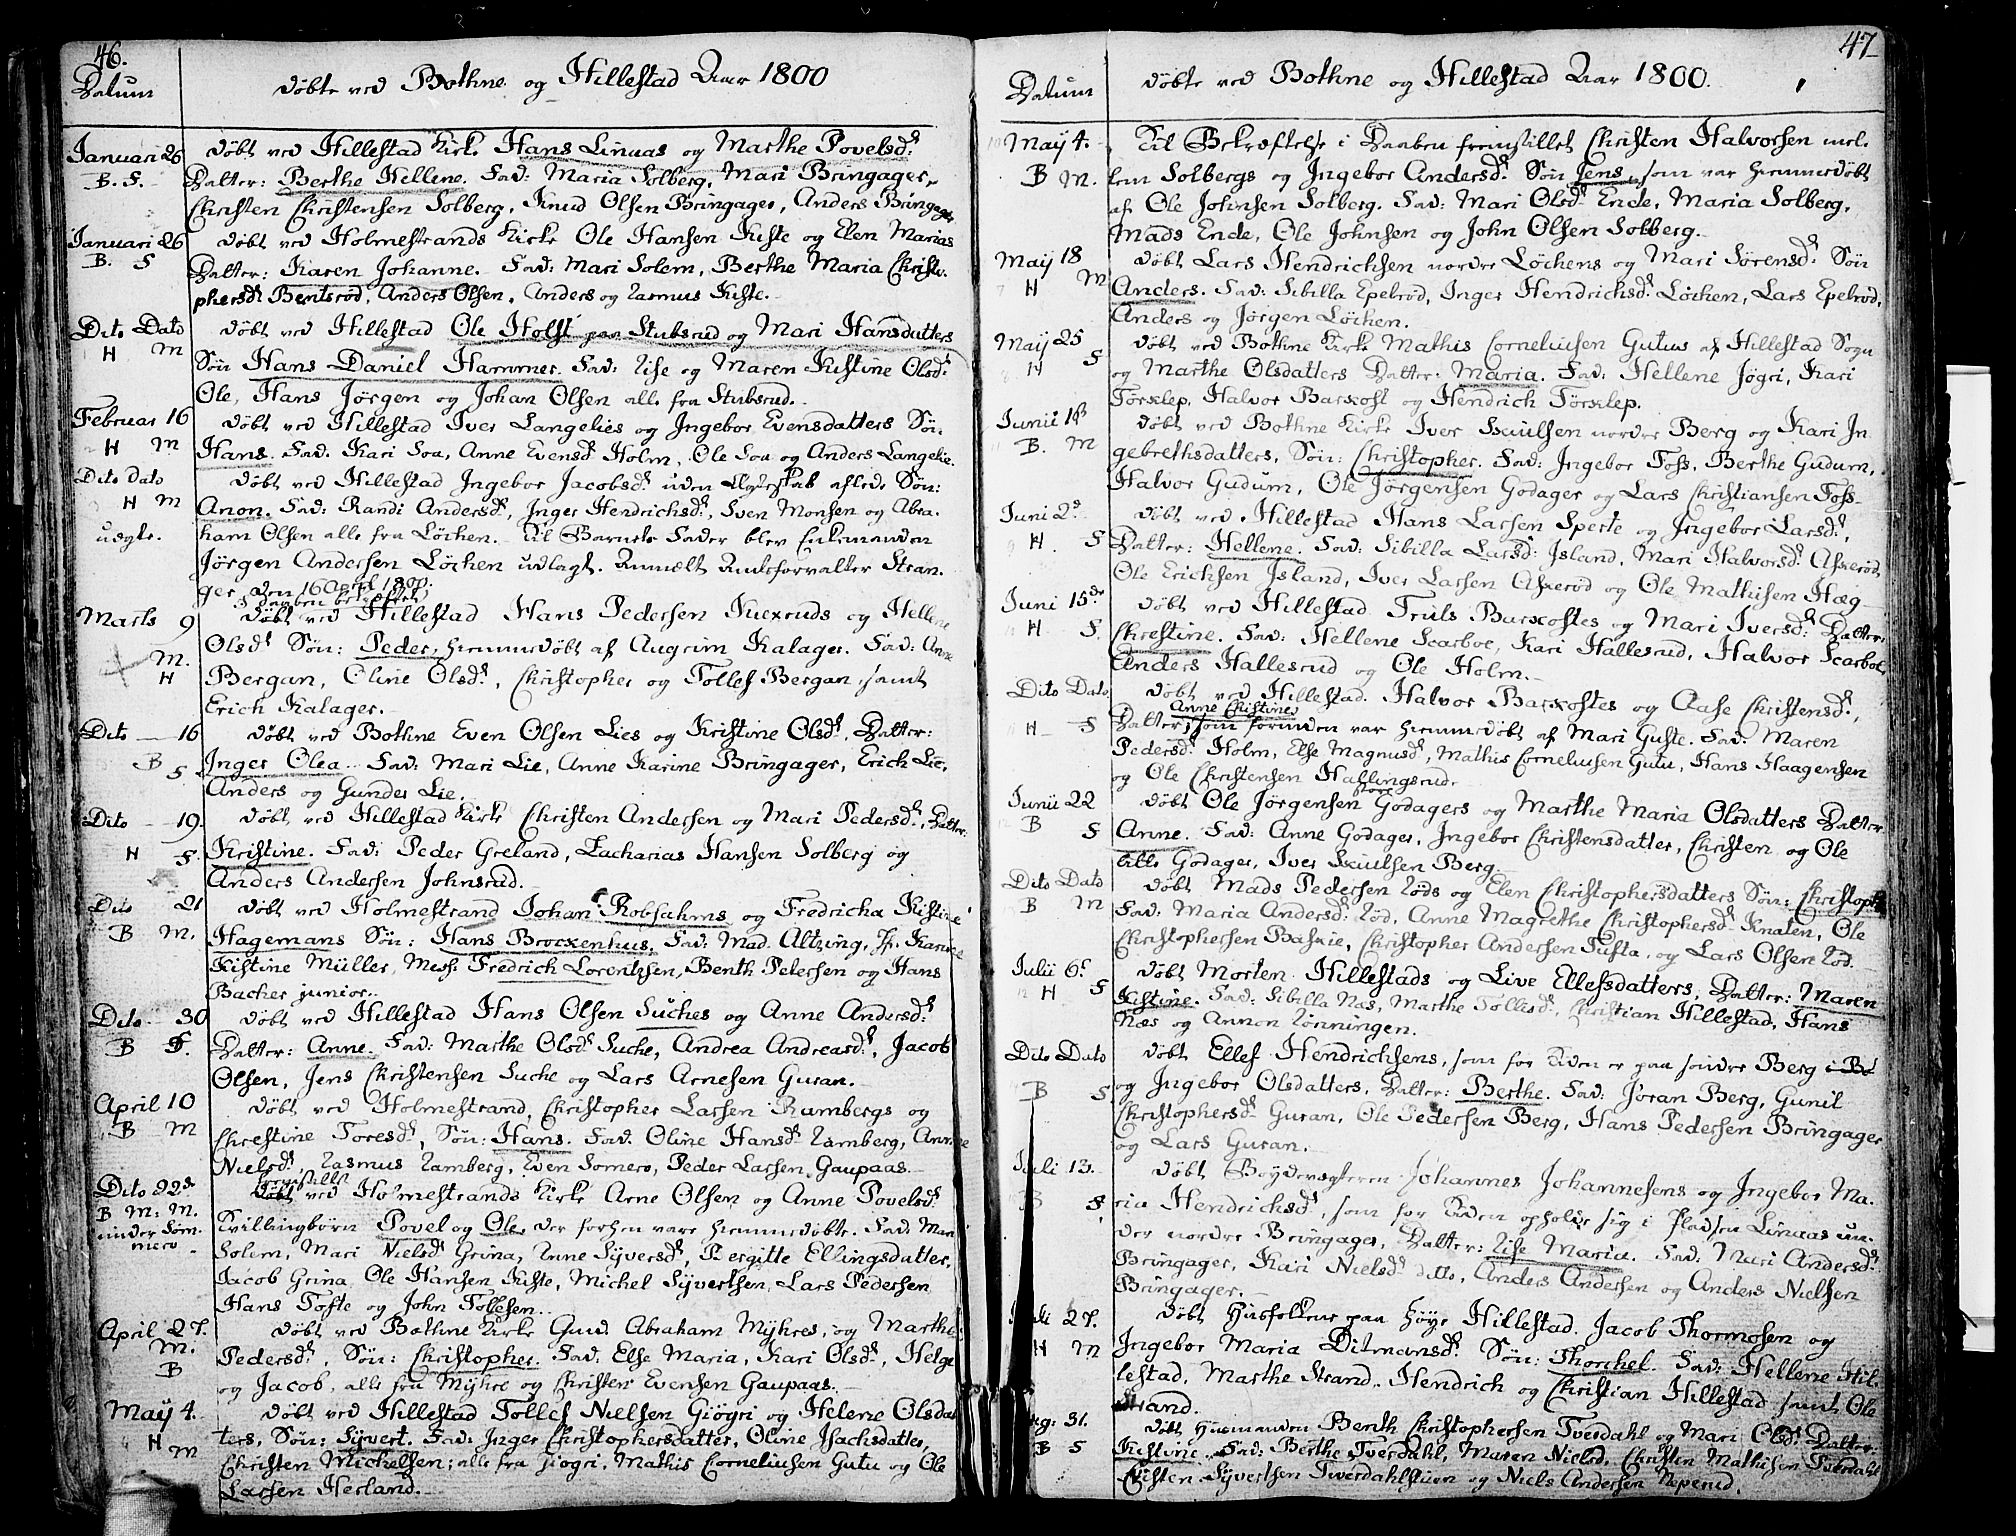 46.
Datum
döbte ved Bothne og Hillestad Aar 1800
Januari 26 döbt ved Hillestad Kirke Hans Linaas og Marthe Povelsdr
B. F. Datter: Berthe Hellene. Fad: Maria Solberg, Mari Bringager,
Christen Christensen Solberg, Knud Olsen Bringager, Anders Bringager
Januari 26 döbt ved Holmestrands Kirke Ole Hansen Kiste og Elen Marias
B. F Datter: Karen Johanne. Fad: Mari Solem, Berthe Maria Christo-
phersdr Bentsröd, Anders Olsen, Anders og Rasmus Kiste.
Dito Dato döbt ved Hillestad Ole Holst paa Stubsrud og Mari Hansdatters
H M Sön Hans Daniel Hammer. Fad: Lise og Maren Kistine Olsdr
Ole, Hans Jörgen og Johan Olsen alle fra Stubsrud.
Februar 16 döbt ved Hillestad Iver Langelies og Ingebor Evensdatters Sön.
H M Hans. Fad: Kari Soa, Anne Evensdr Holm, Ole Soa og Anders Langelie.
Dito dato döbt ved Hillestad Ingebor Jacobsdr uden Ægteskab aflede Sön:
H M Anon. Fad: Randi Andersdr, Inger Hendrichsdr, Sven Monsen og Abra-
uægte. ham Olsen alle fra Löchen. Til Barnets Fader blev Enkemanden
Jörgen Andersen Löchen udlagt. Anmelt Amtsforvalter Stran-
ger den 16 April 1800.
i daaben bekræftet
Marts 9 döbt ved Hillestad Hans Pedersen Kiexruds og Hellene
M. Olsdr Sön: Peder, hiemmedöbt af Augrim Kalager. Fad: Anne
H Bergan, Oline Olsdr, Christopher og Tollef Bergan, samt
Erich Kalager.
Dito 16 döbt ved Bothne Even Olsen Lies og Kristine Olsdr, Datter:
B F Inger Olea. Fad: Mari Lie, Anne Karine Bringager, Erich Lie,
Anders og Gunder Lie.
Dito 19. döbt ved Hillestad Kirke Christen Andersen og Mari Pedersdr, Datter:
H F. Kristine. Fad: Peder Greland, Zacharias Hansen Solberg og
Anders Andersen Johnsrud.
Dito 21 döbt ved Holmestrand Johan Robsahms og Fredricha Kistine
B M. Hagemans Sön: Hans Brockenhus. Fad: Mad. Altzing, Jfr. Karine
Kistine Müller, Mess. Fredrich Lorentzsen, Benth Petersen og Hans
Bacher junior.
Dito 30 döbt ved Hillestad Hans Olsen Suches og Anne Andersdr
B F. Datter: Anne. Fad: Marthe Olsdr Suche, Andrea Andreasdr, Jacob
Olsen, Jens Christensen Suche og Lars Arnesen Guran.
April 10 döbt ved Holmestrand, Christopher Larsen Rambergs og
B M Christine Toresdr, Sön: Hans. Fad. Oline Hansdr Ramberg, Anne
Nielsdr, Rasmus Ramberg, Even Somero, Peder Larsen Gaupaas.
fremstillt
Dito 22de döbt ved Holmestrands Kirke Arne Olsen og Anne Povelsdr
B M: M. Tvillingbörn Povel og Ole, der forhen vare hiemmedöbte. Fad: Mari
under Som- Solem, Mari Nielsdr Grina, Anne Syversdr, Bergitte Ellingsdatter,
mero Jacob Grina, Ole Hansen Kiste, Michel Syvertsen, Lars Pedersen
Hans Tofte og John Tollefsen.
April 27. döbt ved Bothne Kirke Gud. Abraham Myhres, og Marthe
M. Pedersdr, Sön: Christopher. Fad: Else Maria, Kari Olsdr, Helge
B og Jacob, alle fra Myhre og Christen Evensen Gaupaas.
May 4. döbt ved Hillestad Tollef Nielsen Giögri og Helene Olsdat-
H M ters, Sön: Syvert. Fad: Inger Christophersdatter, Oline Isachsdatter,
Christen Michelsen; alle fra Giogri, Mathis Corneliusen Gutu og Ole
Larsen Herland.
47
Datum
döbte ved Bothne og Hillestad Aar 1800.
May 4. Til Bekræftelse i Daaben fremstillet Christen Halvorsen mel-
B M. lem Solbergs og Ingebor Andersdr Sön Jens, som var hiemmedöbt
af Ole Johnsen Solberg. Fad: Mari Olsdr Ende, Maria Solberg,
Mads Ende, Ole Johnsen og John Olsen Solberg.
May 18 döbt Lars Hendrichsen nordre Löchens og Mari Sörensdr Sön
H M Anders. Fad: Sibilla Epelröd, Inger Hendrichsdr Löchen, Lars Epelröd,
Anders og Jörgen Löchen.
May 25 döbt ved Bothne Kirke Mathis Corneliusen Gutus af Hillestad Sogn
H F og Marthe Olsdatters Datter: Maria. Fad: Hellene Jögri, Kari
Törxlep, Halvor Barkost og Hendrich Törxlep.
Junii 1st döbt ved Bothne Kirke Iver Skiulsen nordre Berg og Kari In-
B. M gebrethsdatters, Sön: Christopher. Fad: Ingebor Foss, Berthe Gudum,
Halvor Gudum, Ole Jörgensen Godager og Lars Christiansen Foss.
Juni 2d döbt ved Hillestad Hans Larsen Sperte og Ingebor Larsdr,
H. F Datter: Hellene. Fad: Sibilla Larsdr Island, Mari Halvorsdr Askeröd
Ole Erichsen Island, Iver Larsen Askeröd og Ole Mathisen Hæg
Juni 15de döbt ved Hillestad Truls Barkostes og Mari Iversdr Datter:
H F. Chrestine. Fad: Hellene Scarboe, Kari Hallesrud, Halvor Scarboe,
Anders Hallesrud og Ole Holm.
Dito Dato döbt ved Hillestad. Halvor Barkostes og Aase Christensdr,
Anne Christine
H F Datter, som forinden var hiemmedöbt af Mari Guste. Fad: Maren
Pedersdr Holm, Else Magnusdr, Mathis Corneliusen Gutu, Hans Haagensen
og Ole Christensen Hallingsrud.
store
Junii 22 döbt Ole Jörgensen Godagers og Marthe Maria Olsdatters Datter
B F Anne. Fad: Anne Godager, Ingebor Christensdatter, Christen og Ole
lille Godager, Iver Skiulsen Berg.
Dito Dato döbt Mads Pedersen Röds og Elen Christophersdatters Sön: Christopher
B M Fad: Maria Andersdr Röd, Anne Magrethe Christophersdr Knalen, Ole
Christophersen Baskie, Christopher Andersen Tufta, og Lars Olsen Röd.
Julii 6te döbt Morten Hillestads og Live Ellefsdatters, Datter: Maren
H F Kistine. Fad: Sibilla Nas, Marthe Tollefsdr, Christian Hillestad, Hans
Næs og Annon Rönningen.
Dito Dato döbt Ellef Hendrichsens, som for Tiden er paa söndre Berg i Bo
B F. og Ingebor Olsdatters, Datter: Berthe. Fad: Jöran Berg, Gunil
Christophersdr Guran, Ole Pedersen Berg, Hans Pedersen Bringager
og Lars Guran.
Juli 13. döbt Johannes Johannesens og Ingebor Ma-
B F ria Hendrichsdr, som for Tiden opholde sig i Pladsen Linaas un-
der nordre Bringager, Datter: Lise Maria. Fad: Mari Andersdr
Bringager, Kari Nielsdr ditto, Anders Andersen og Anders Nielsen
Bringager.
Juli 27. döbt Husfolkene paa höye Hillestad. Jacob Thormosen og
H M Ingebor Maria Ditmansdr Sön: Thorchel. Fad: Hellene Hil-
lestad, Marthe Strand, Hendrich og Christian Hillestad samt Ole
Strand.
Aug: 31. döbt Husmanden Benth Christophersen Tverdahl og Mari Olsdr Datter:
B F Kistine. Fad: Berthe Tverdahl, Maren Nielsdr, Christen Mathisen Tverdahl
Christen Syvertsen Tverdahlstuen og Niels Andersen Neperud.